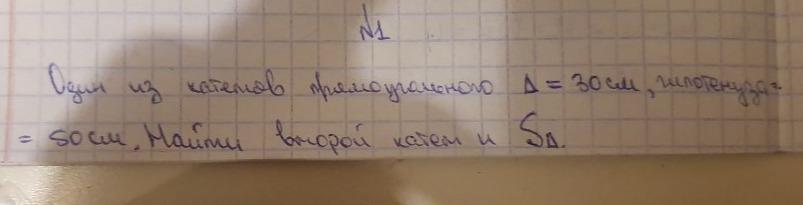 №1
Один из катетов прямоугольного Δ = 30см, гипотенуза=
= 50см. Найти второй катет и SΔ.